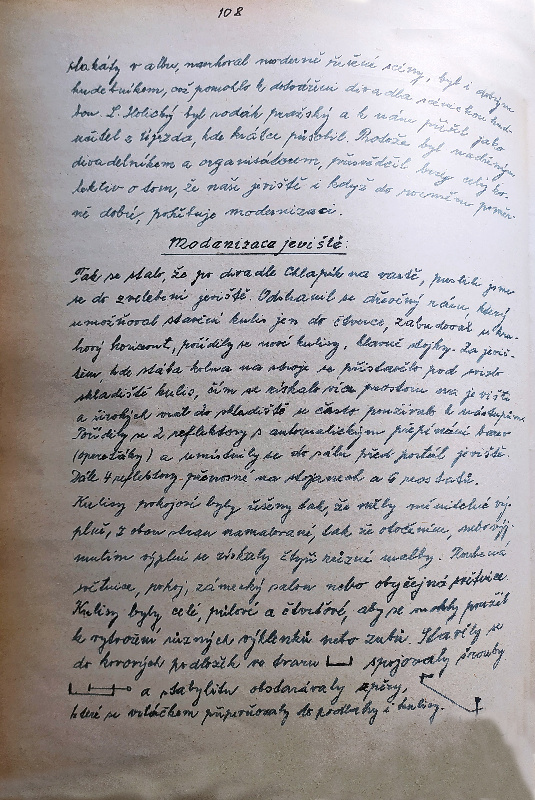 108
plakáty v albu, navrhoval moderně řešené scény, byl i dobrým
hudebníkem, což pomohlo k dotváření divadla scénickou hud-
bou. L. Holický byl rodák pražský a k nám přišel jako
učitel z Újezda, kde krátce působil. Protože byl nadšeným
divadelníkem a organisátorem, přesvědčil brzy celý ko-
lektiv o tom, že naše jeviště i když do rozměru poměr-
ně dobré, potřebuje modernizaci.
Modernizace jeviště:
Tak se stalo, že po divadle Chlapík na vartě, pustili jsme
se do zvelebení jeviště. Odstranil se dřevěný rám, který
umožňoval stavění kulis jen do čtverce, zabudoval se kru-
hový horizont, pořídily se nové kulisy, hlavně stojky. Za jeviš-
těm, kde stála kolna na stroje se přistavělo pod
skladiště kulis, čím se získalo více prostoru na jevišti
a širokých vrat do skladiště se často používalo k nástupům.
Pořídily se 2 reflektory s automatickým přepínání barev
(operáťáky) a umístnily se do sálu před portál jeviště.
Dále 4 reflektory přenosné na stojanech a 6 reostatů.
Kulisy pokojové byly řešeny tak, že měly měnitelné vý-
plně, z obou stran namalované, tak že otočením, nebo vyj-
mutím výplně se získaly čtyři různé malby. Roubená
světnice, pokoj, zámecký salon nebo obyčejná světnice.
Kulisy byly celé, půlové a čtvrťové, aby se mohly použít
k vytvoření různých výklenků nebo zubů. Stavěly se
do kovových podložek ve tvaru spojovaly šrouby
a stabylitu obstarávaly vzpěry,
které se vrtáčkem připevňovaly do podlahy i kulisy.